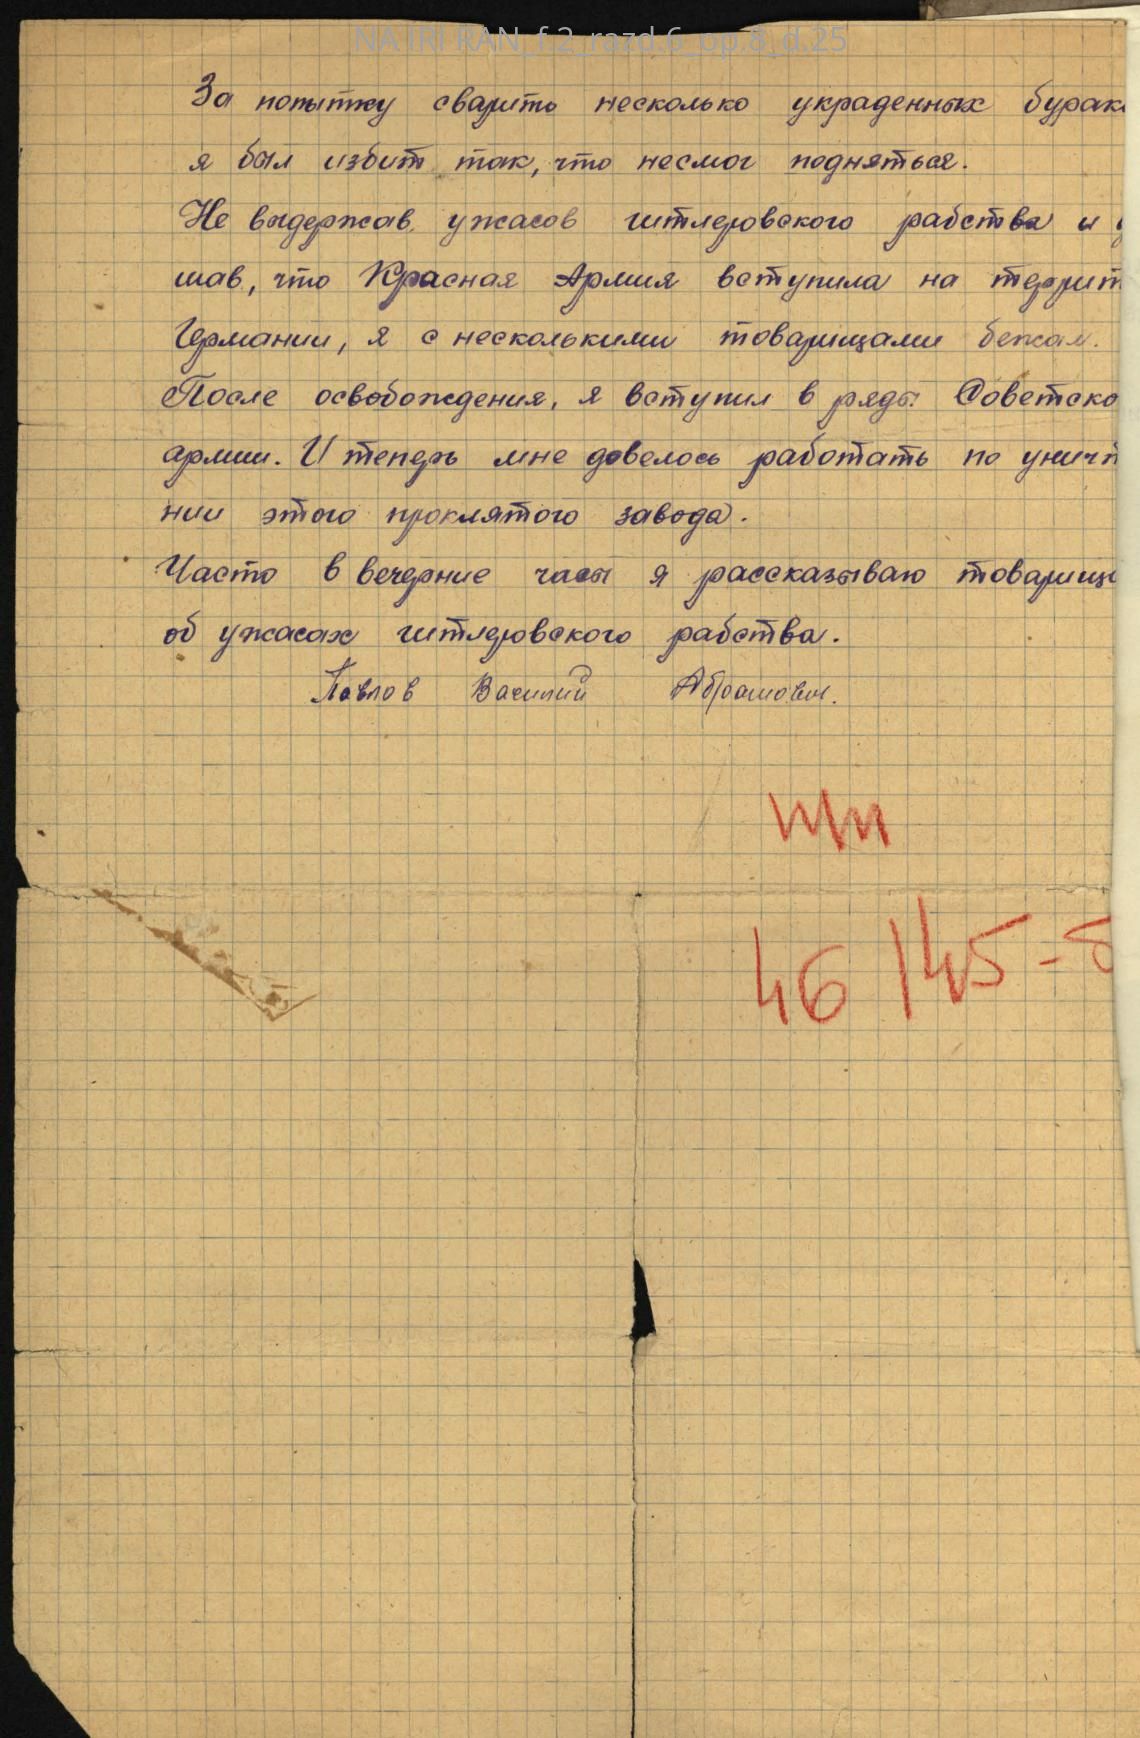 NA IRI RAN_f.2_razd.6_op.8_d.25
За попытку сварить несколько украденных бурак
я был избит так, что несмог подняться.
Не выдержав ужасов гитлеровского рабства и
шав, что Красная Армия вступила на террит
Германии, я с несколькими товарищами бежал.
После освобождения, я вступил в ряды Советско
армии. И теперь мне довелось работать по уничт
нии этого проклятого завода.
Часто в вечерние часы я рассказываю товарищ
об ужасах гитлеровского рабства.
Павлов Василий Абрамович.
46 145-